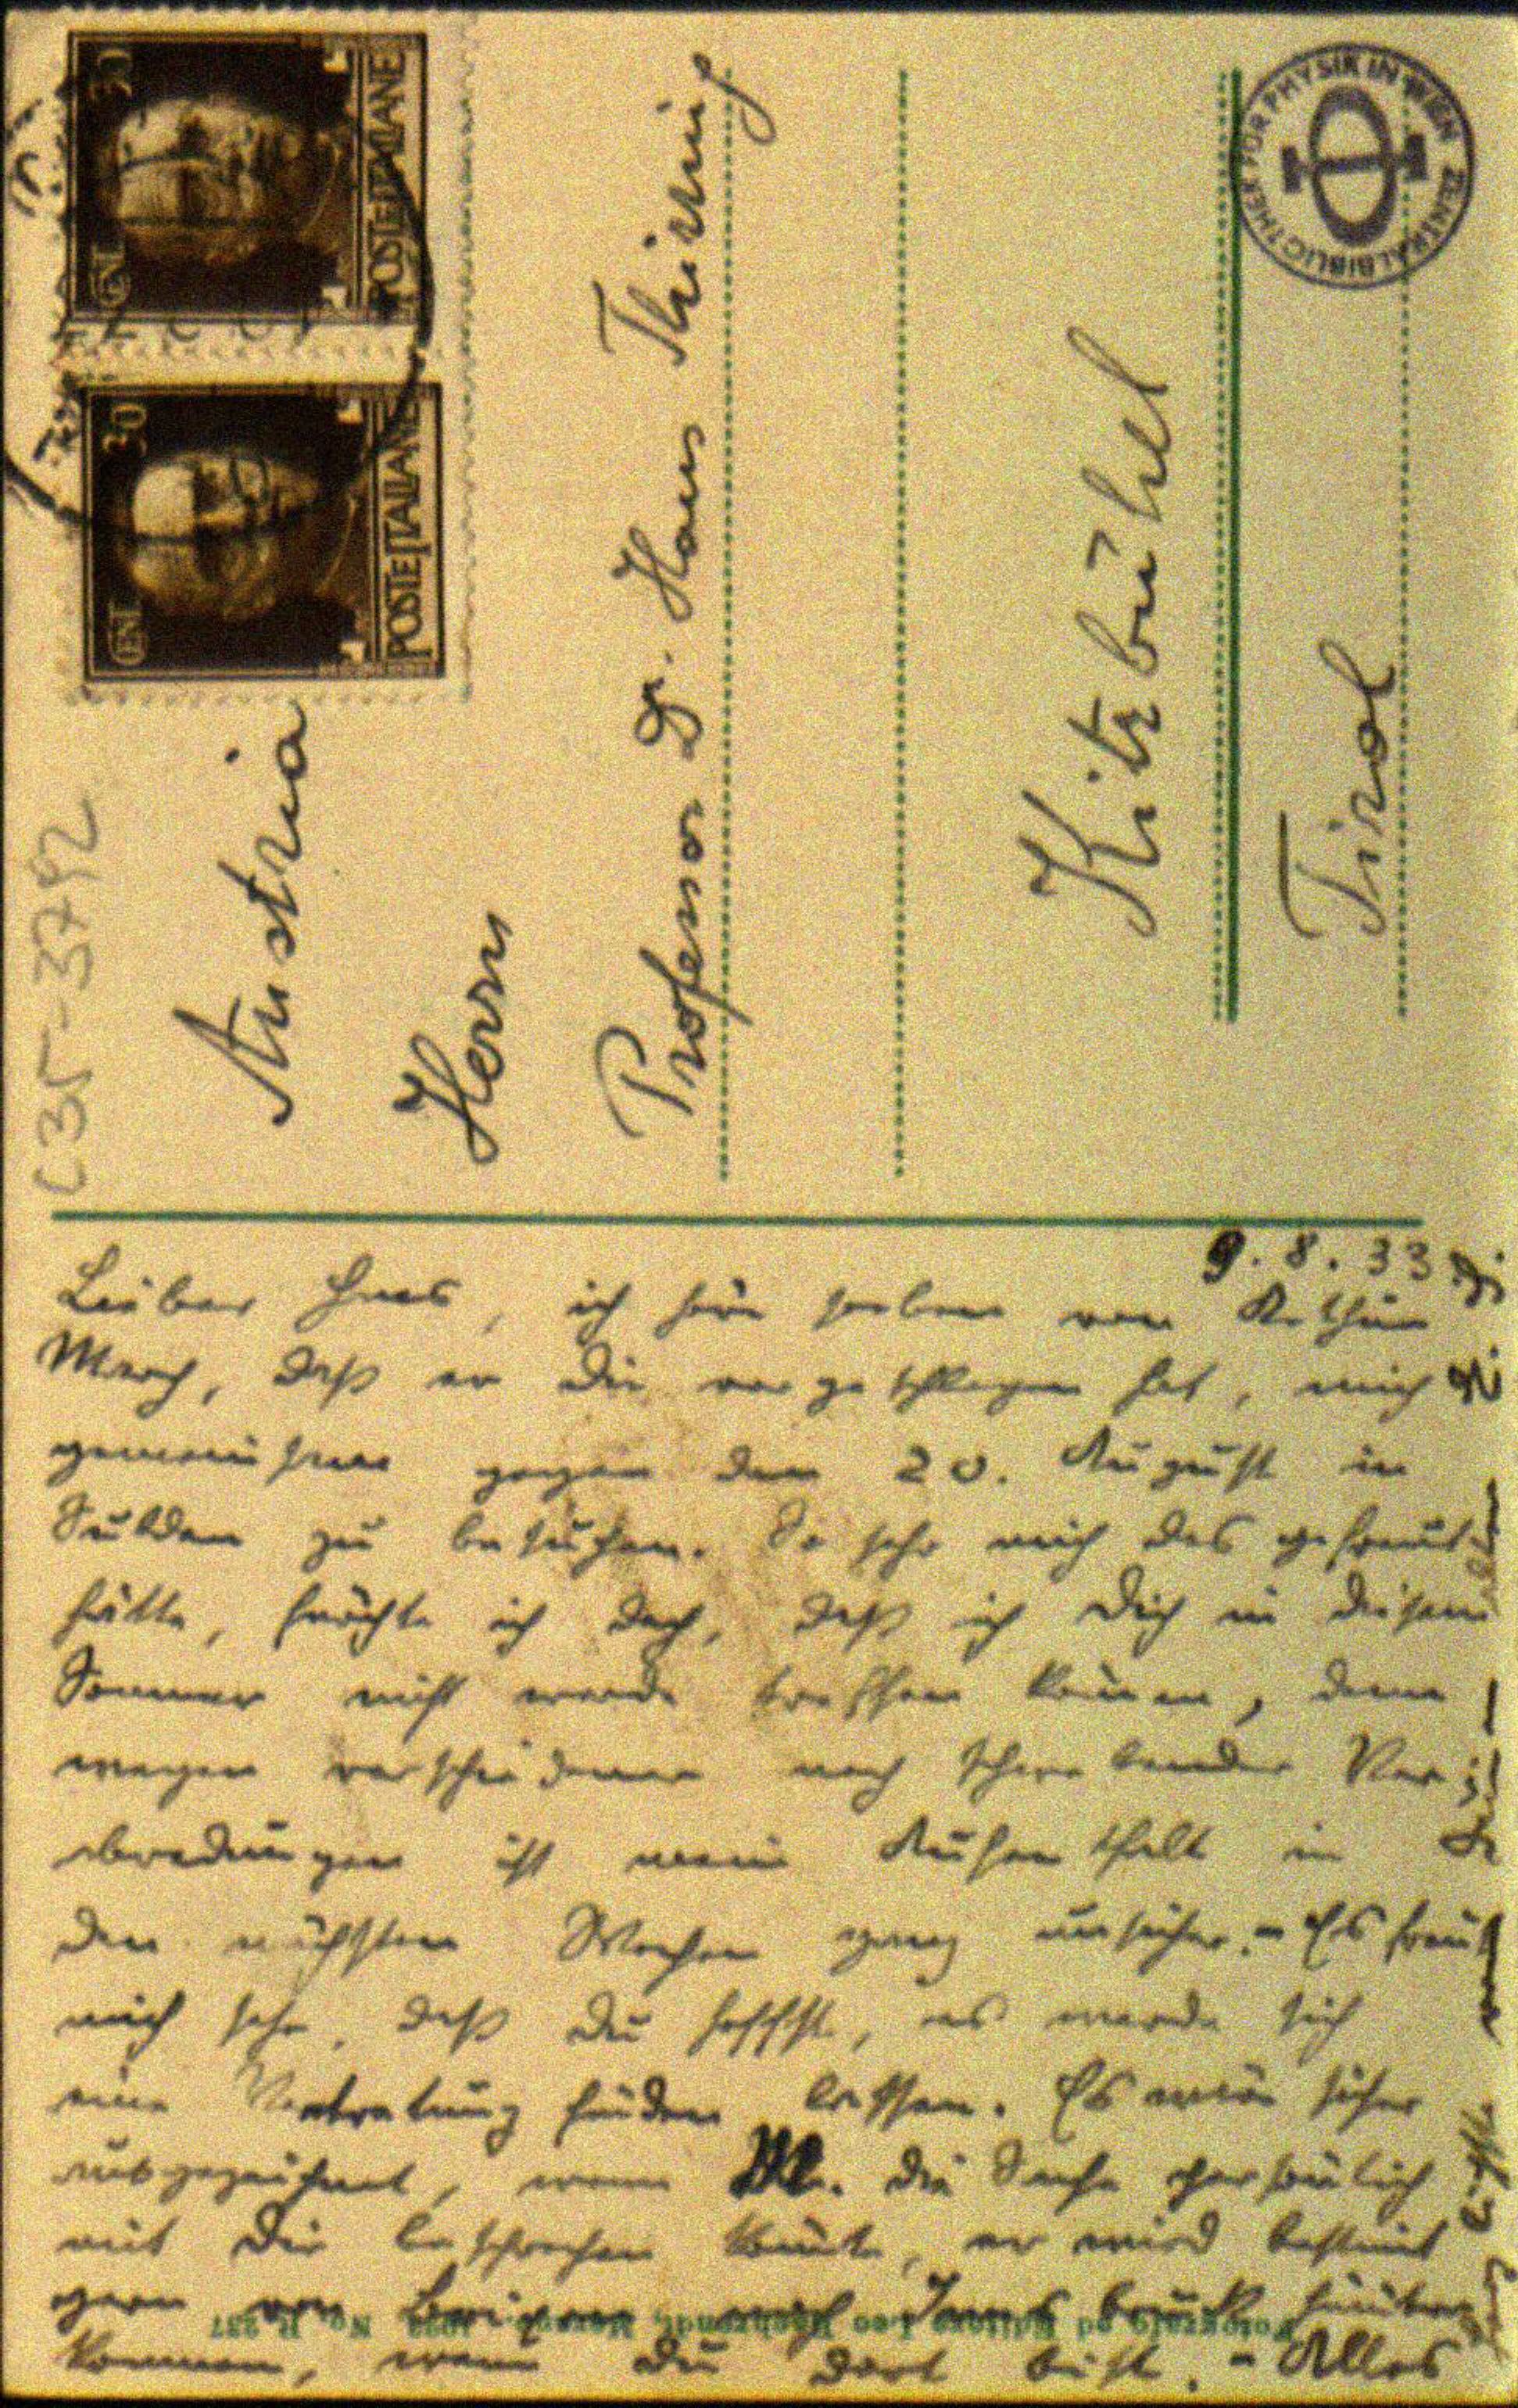 C35-3792
CENT 30
POSTE ITALIANE
CENT 30
POSTE ITALIANE
Austria
Herrn
Professor Dr. Hans Thirring
Kitzbühel
Tirol
ZENTRALBIBLIOTHEK FÜR PHYSIK IN WIEN
9.8.33
Lieber Hans, ich höre soeben von Arthur
March, daß er Dir vorgeschlagen hat, mich
gemeinsam gegen den 20. August in
Sulden zu besuchen. So sehr mich das gefreut
hätte, fürchte ich doch, daß ich Dich in diesem
Sommer nicht werde treffen können, denn
wegen verschiedener noch schwebender Ver-
abredungen ist mein Aufenthalt in
den nächsten Wochen ganz unsicher. – Es freut
mich sehr, daß Du hoffst, es werde sich
eine Vertretung finden lassen. Es wäre sicher
ausgezeichnet, wenn M. die Sache persönlich
mit Dir besprechen könnte, er wird bestimmt
gern von nach Innsbruck hinüber
kommen, wenn Du dort bist. – Alles
Fotografo ed Editore Leo Bährendt Merano 1932 No R 237